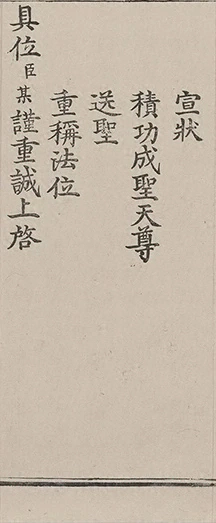 宣狀
積功成聖天尊
送聖
重稱法位
具位臣某謹重誠上啓